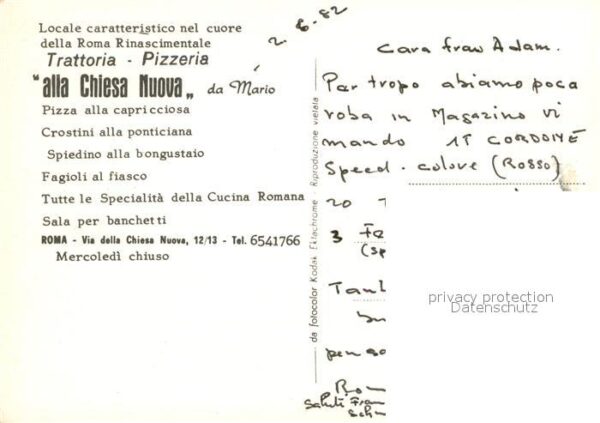 Locale caratteristico nel cuore
della Roma Rinascimentale
Trattoria - Pizzeria
"alla Chiesa Nuova„ da Mario
Pizza alla capricciosa
Crostini alla ponticiana
Spiedino alla bongustaio
Fagioli al fiasco
Tutte le Specialità della Cucina Romana
Sala per banchetti
ROMA - Via della Chiesa Nuova, 12/13 - Tel. 6541766
Mercoledì chiuso
da fotocolor Kodak Ektachrome Riproduzione vietata
2-6-82
Cara frau Adam.
Par tropo abiamo poca
roba in Magazino vi
mando 1T CORDONE
Speed - colore (ROSSO)
20
3 Fa
(sp
Tan
pen so
Rom
Saluti Fran
Sch
privacy protection
Datenschutz